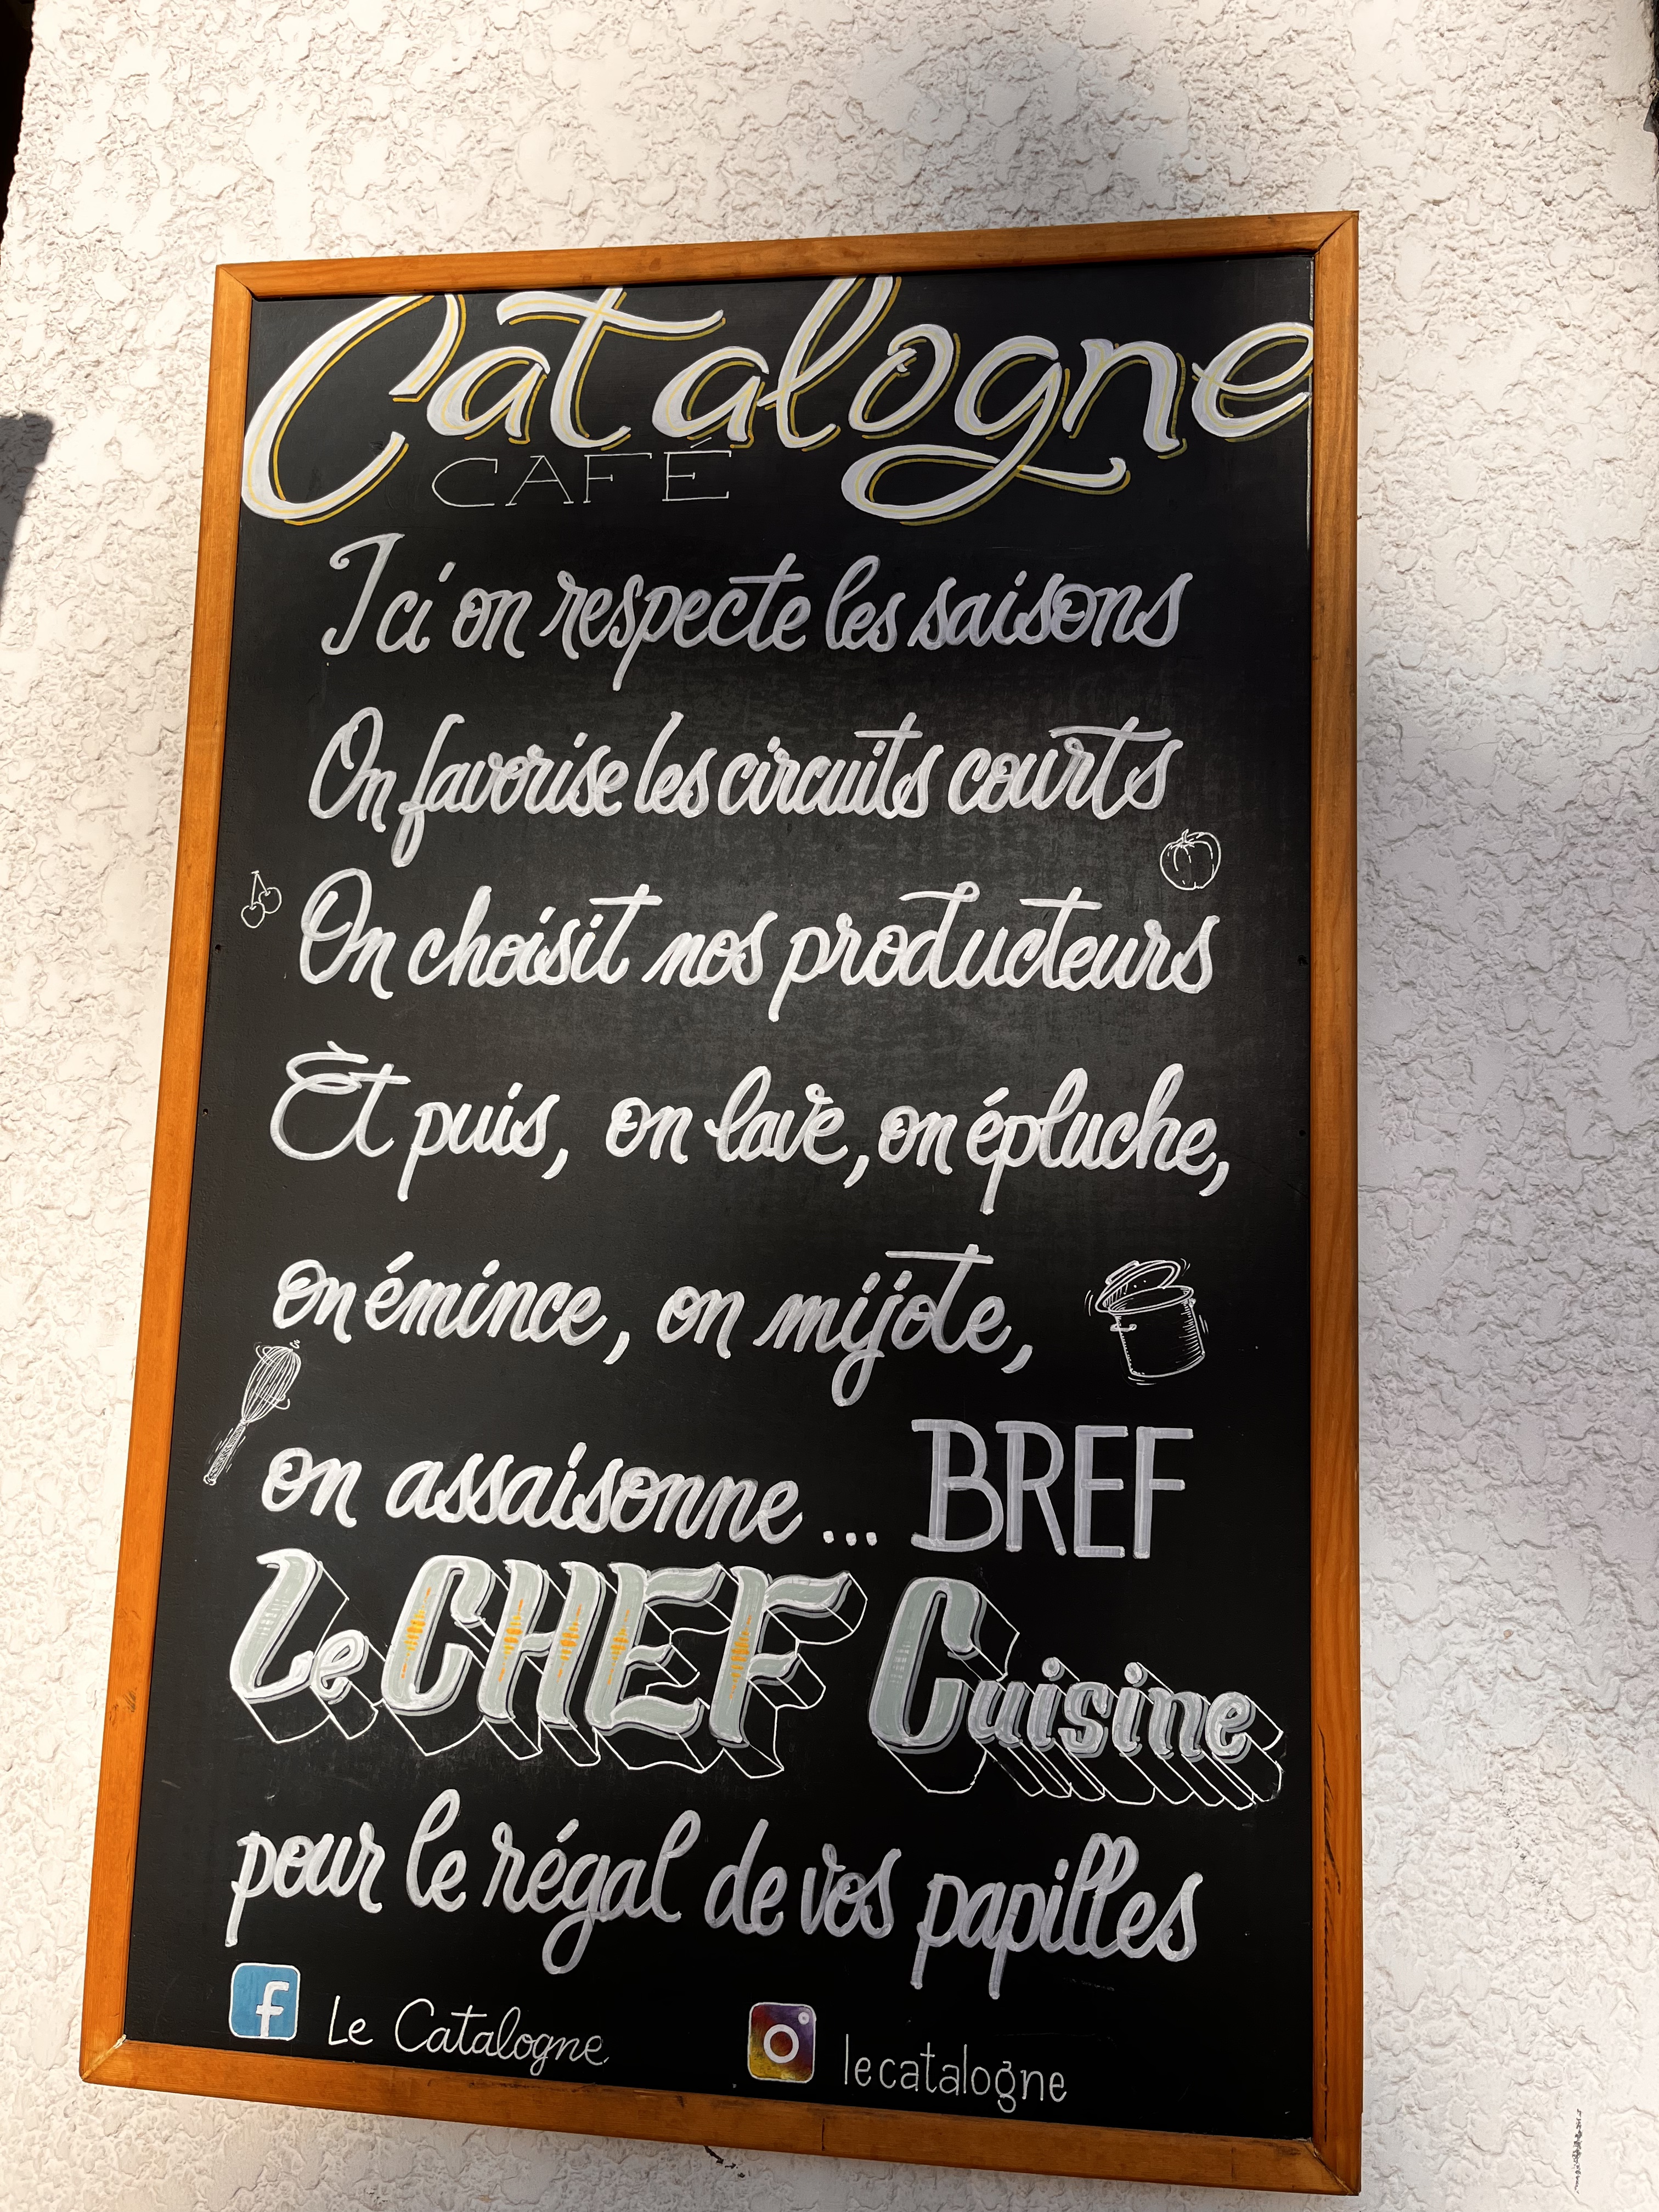 Catalogne
CAFÉ
Ici on respecte les saisons
On favorise les circuits courts
On choisit nos producteurs
Èt puis, on lave, on épluche,
on émince, on mijote,
on assaisonne... BREF
Le CHEF Cuisine
pour le régal de vos papilles
f Le Catalogne lecatalogne